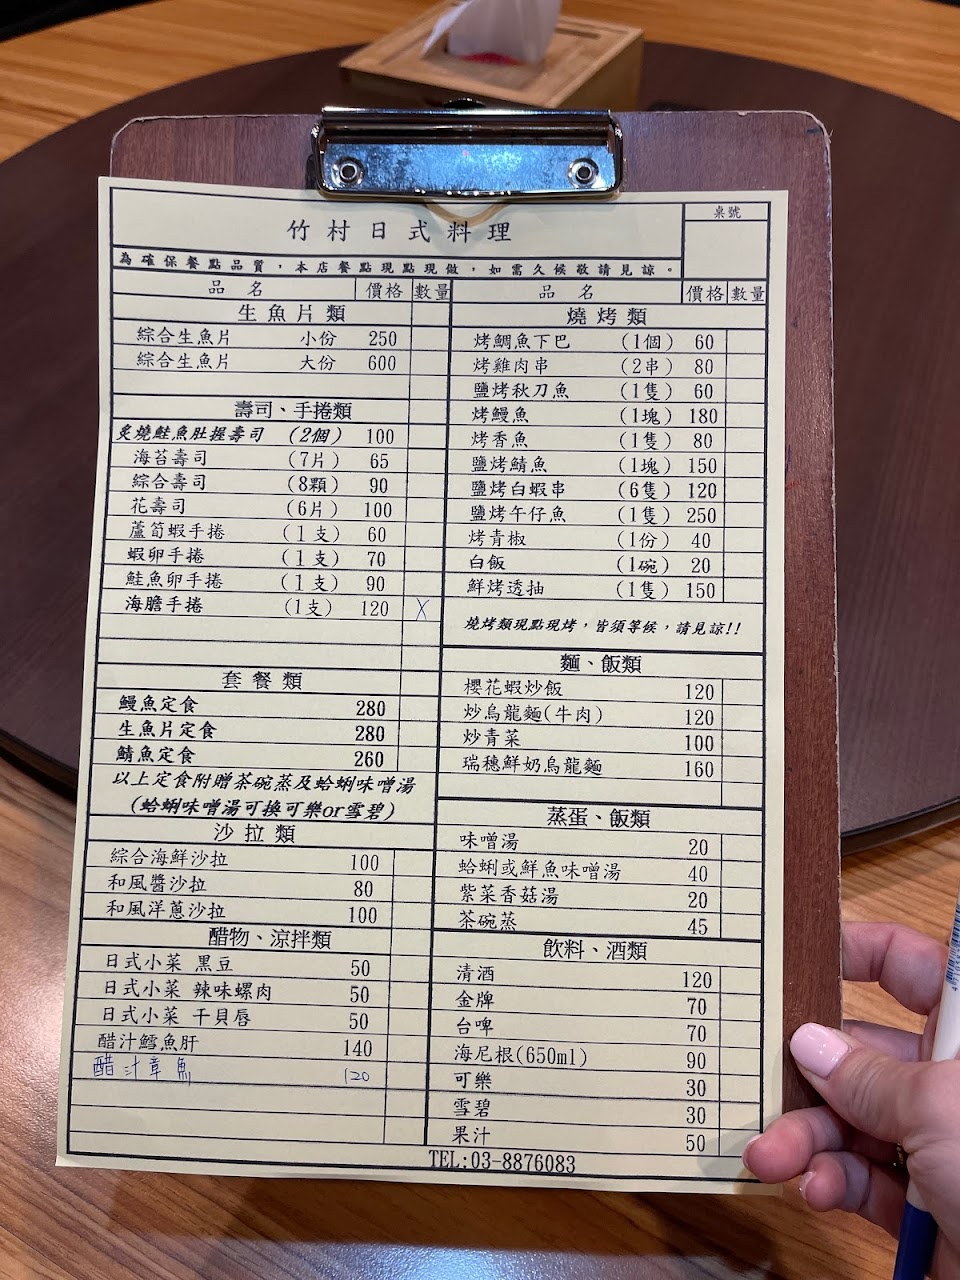 竹村日式料理
桌號
為確保餐點品質，本店餐點現點現做，如需久候敬請見諒。
品名 價格 數量
生魚片類
綜合生魚片 小份 250
綜合生魚片 大份 600
壽司、手捲類
炙燒鮭魚肚握壽司 (2個) 100
海苔壽司 (7片) 65
綜合壽司 (8顆) 90
花壽司 (6片) 100
蘆筍蝦手捲 (1支) 60
蝦卵手捲 (1支) 70
鮭魚卵手捲 (1支) 90
海膽手捲 (1支) 120 X
套餐類
鰻魚定食 280
生魚片定食 280
鯖魚定食 260
以上定食附贈茶碗蒸及蛤蜊味噌湯
(蛤蜊味噌湯可換可樂or雪碧)
沙拉類
綜合海鮮沙拉 100
和風醬沙拉 80
和風洋蔥沙拉 100
醋物、涼拌類
日式小菜 黑豆 50
日式小菜 辣味螺肉 50
日式小菜 干貝唇 50
醋汁鱈魚肝 140
醋汁章魚 120
品名 價格 數量
燒烤類
烤鯛魚下巴 (1個) 60
烤雞肉串 (2串) 80
鹽烤秋刀魚 (1隻) 60
烤鰻魚 (1塊) 180
烤香魚 (1隻) 80
鹽烤鯖魚 (1塊) 150
鹽烤白蝦串 (6隻) 120
鹽烤午仔魚 (1隻) 250
烤青椒 (1份) 40
白飯 (1碗) 20
鮮烤透抽 (1隻) 150
燒烤類現點現烤，皆須等候，請見諒!!
麵、飯類
櫻花蝦炒飯 120
炒烏龍麵(牛肉) 120
炒青菜 100
瑞穗鮮奶烏龍麵 160
蒸蛋、飯類
味噌湯 20
蛤蜊或鮮魚味噌湯 40
紫菜香菇湯 20
茶碗蒸 45
飲料、酒類
清酒 120
金牌 70
台啤 70
海尼根(650ml) 90
可樂 30
雪碧 30
果汁 50
TEL:03-8876083